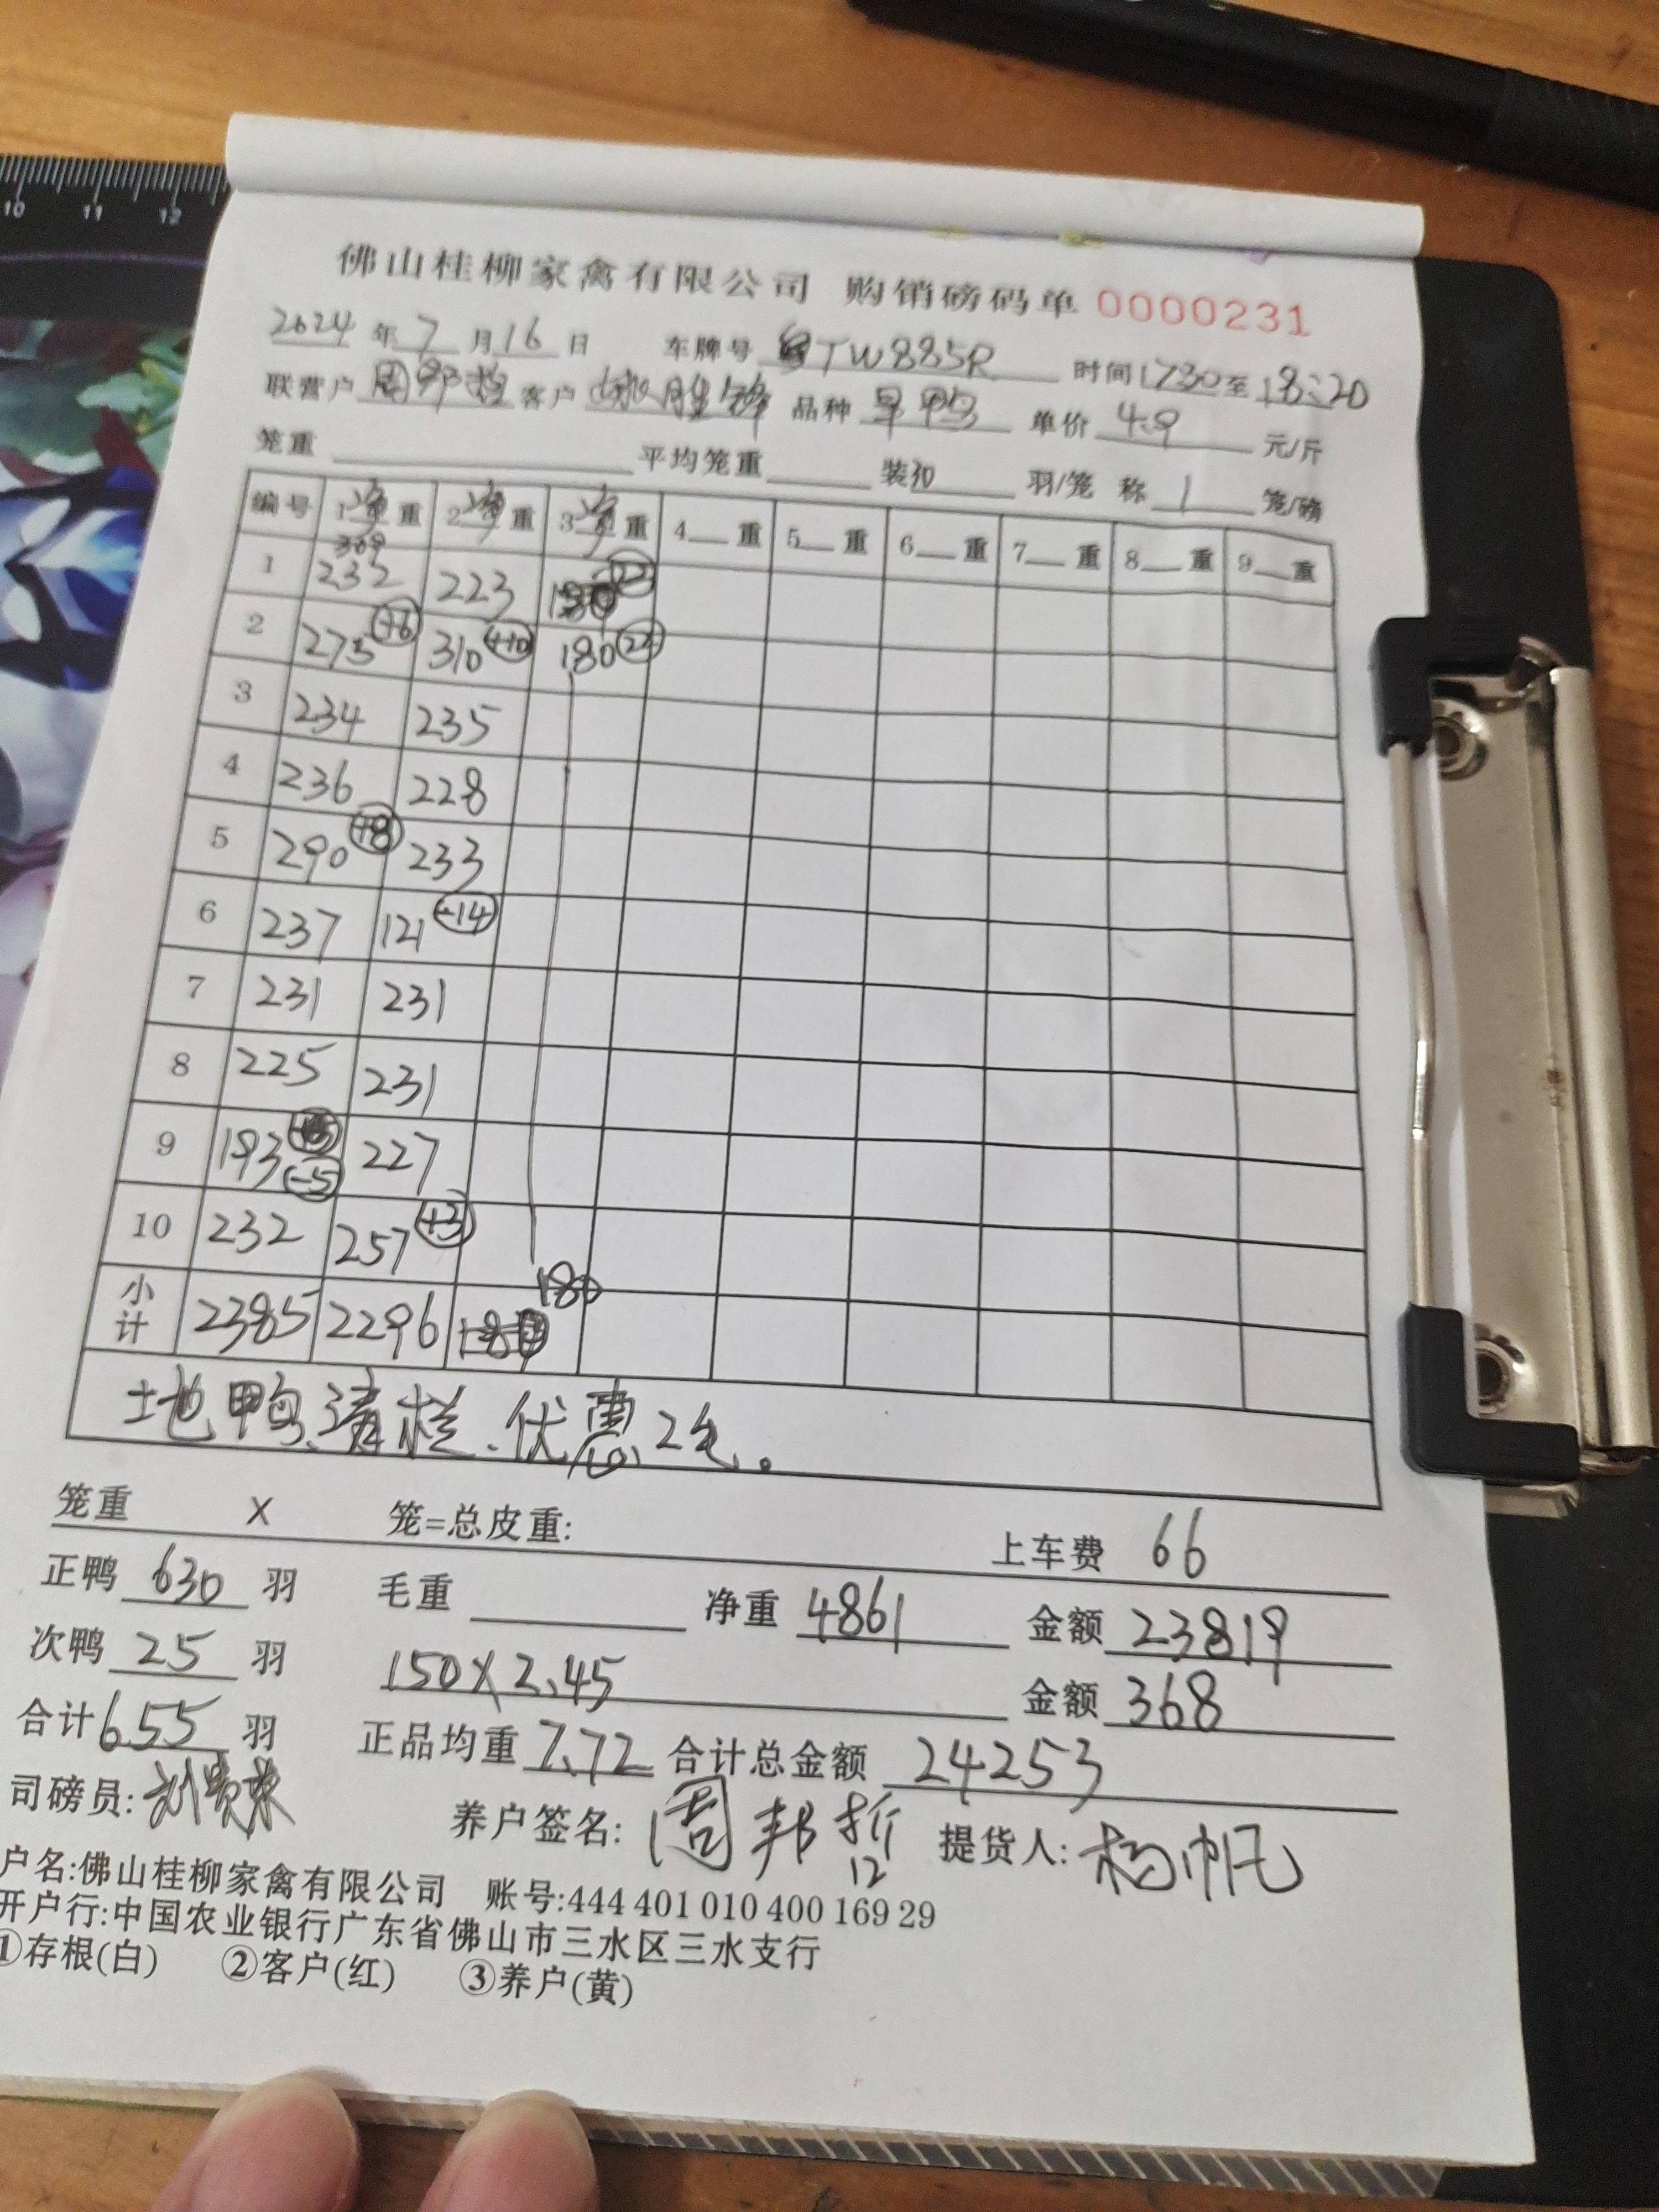 10 11 12
佛山桂柳家禽有限公司 购销磅码单 0000231
2024 年 7 月 16 日 车牌号 TW885R 时间 1730 至 18:20
联营户 周邦哲 客户 胜锋 品种 旱鸭 单价 4.9 元/斤
笼重 平均笼重 装 羽/笼 称 1 笼/磅
编号 1 净重 2 净重 3 净重 4 重 5 重 6 重 7 重 8 重 9 重
1 232 223
2 275 +6 310 +10 180 22
3 234 235
4 236 228
5 290 +8 233
6 237 121 -14
7 231 231
8 225 231
9 193 -5 227
10 232 257 +3
小计 2385 2296 180
土地鸭、清栏、优惠2毛。
笼重 X 笼=总皮重: 上车费 66
正鸭 630 羽 毛重 净重 4861 金额 23819
次鸭 25 羽 150X2.45 金额 368
合计 655 羽 正品均重 7.72 合计总金额 24253
司磅员: 养户签名: 周邦哲 提货人: 杨帆
12
户名:佛山桂柳家禽有限公司 账号:444 401 010 400 169 29
开户行:中国农业银行广东省佛山市三水区三水支行
①存根(白) ②客户(红) ③养户(黄)